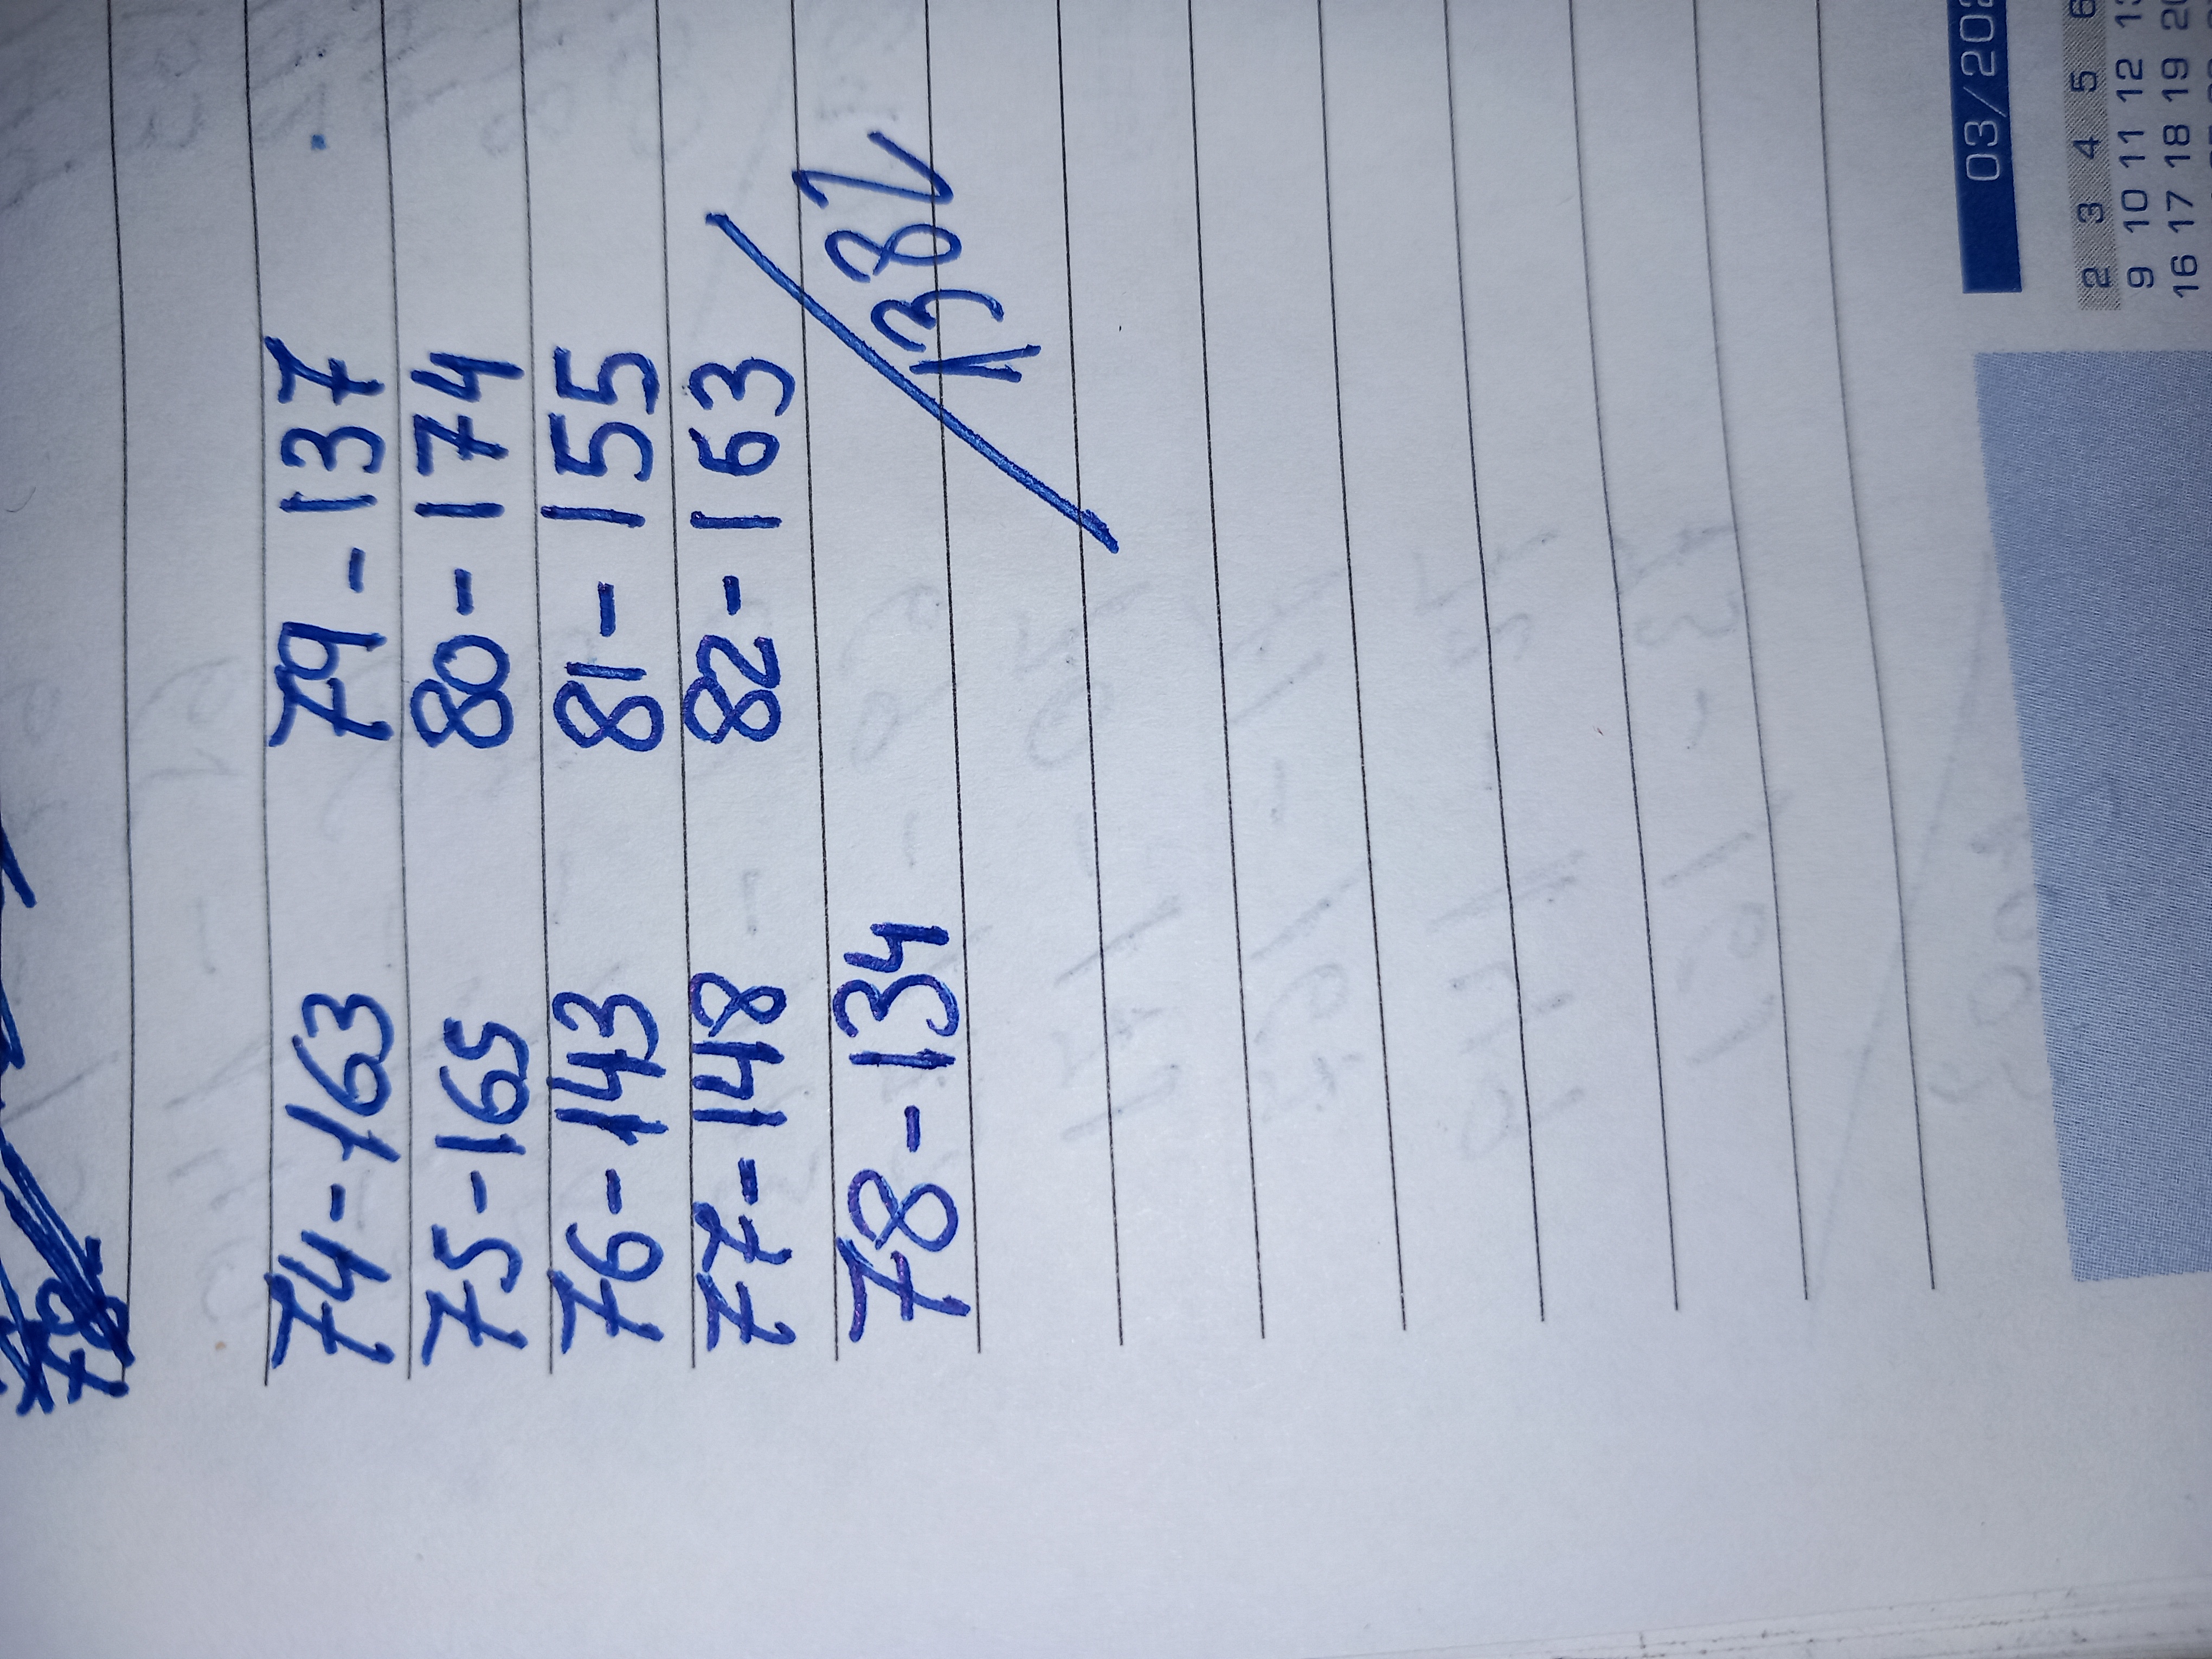 74-163 79-137
75-165 80-174
76-143 81-155
77-148 82-163
78-134
1382
03/202
2 3 4 5 6
9 10 11 12 13
16 17 18 19 20